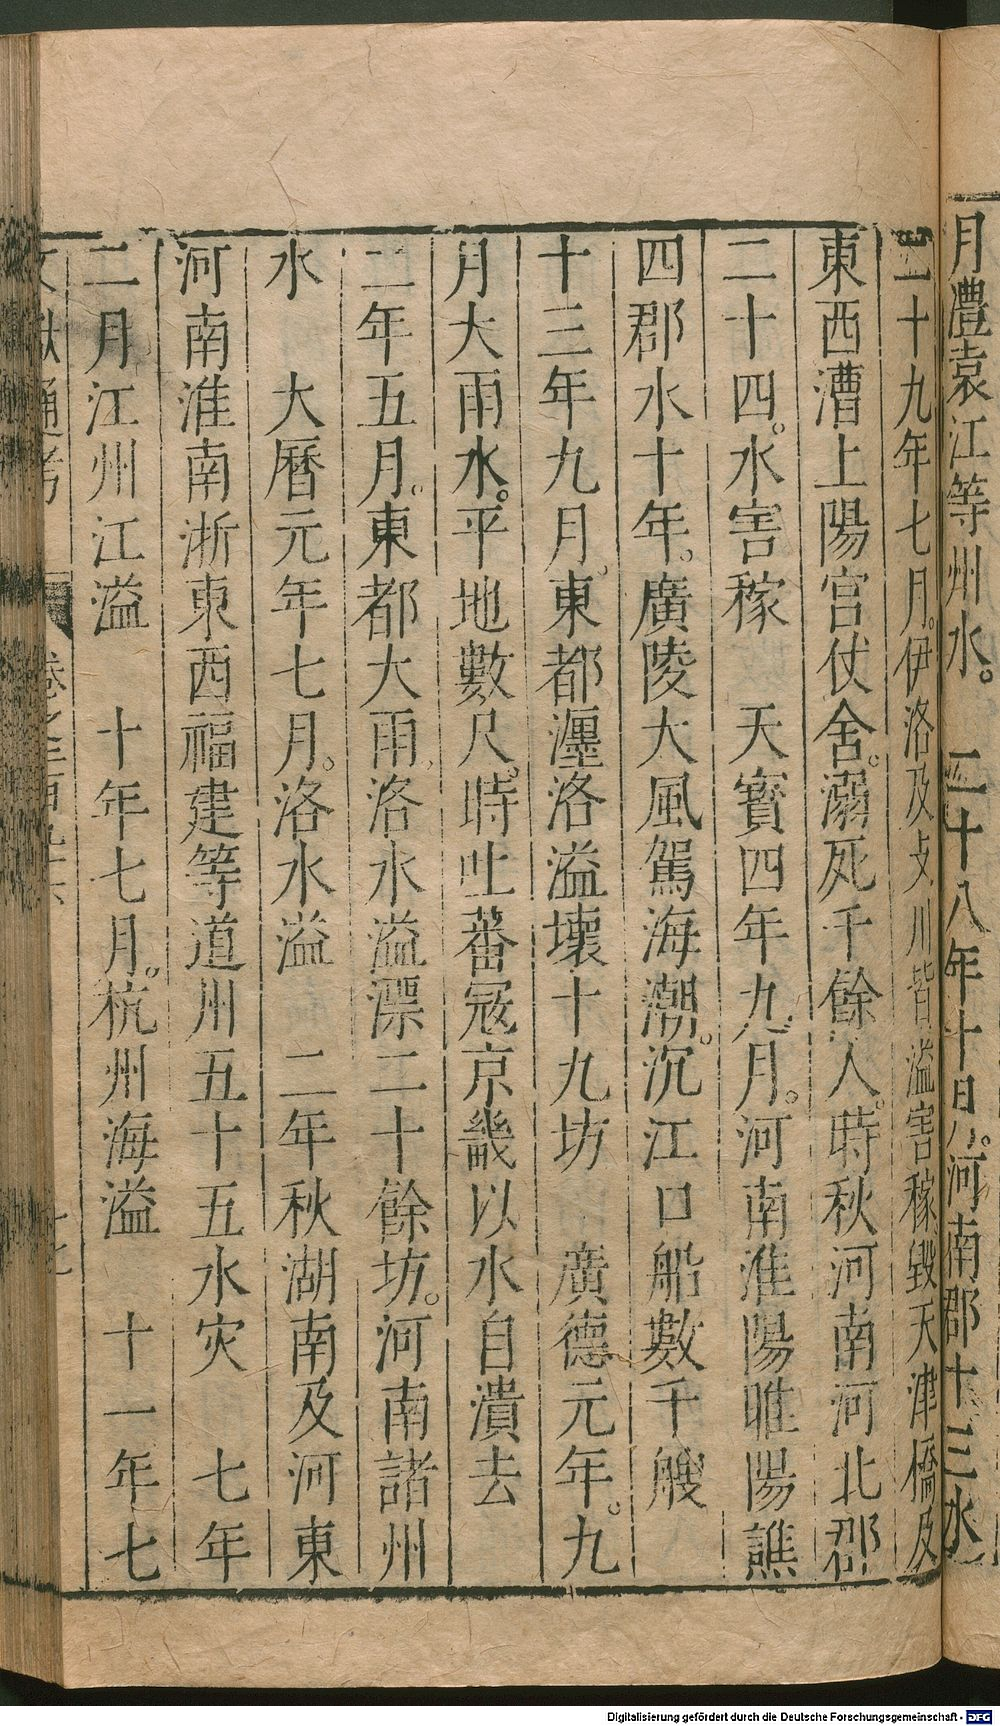 月灃袁江等州水。 二十八年十月。河南郡十三水
二十九年七月。伊洛及支川皆溢害稼毀天津橋及
東西漕上陽宮仗舍。溺死千餘人。時秋河南河北郡
二十四。水害稼 天寶四年九月。河南淮陽睢陽譙
四郡水十年。廣陵大風駕海潮。沉江口船數千艘
十三年九月。東都瀍洛溢壞十九坊 廣德元年。九
月大雨水。平地數尺。時吐蕃寇京畿以水自潰去
二年五月。東都大雨洛水溢漂二十餘坊。河南諸州
水 大曆元年七月。洛水溢 二年秋湖南及河東
河南淮南浙東西福建等道州五十五水灾 七年
二月江州江溢 十年七月。杭州海溢 十一年七
文獻通考 卷之二百九十六 十七
Digitalisierung gefördert durch die Deutsche Forschungsgemeinschaft - DFG